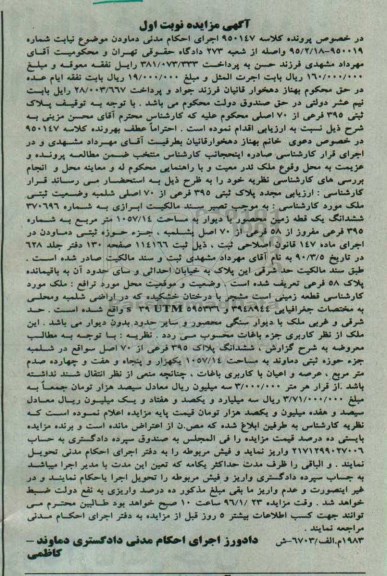 آگهی مزایده نوبت اول
در خصوص پرونده کلاسه ۹۵۰۱۴۷ اجرای احکام مدنی دماوند موضوع نیابت شماره
۹۵۰۰۱۹-۹۵/۲/۱۸ واصله از شعبه ۲۷۳ دادگاه حقوقی تهران و محکومیت آقای
مهرداد مشهدی فرزند حسن به پرداخت ۳۸۱/۰۷۳/۳۳۳ رایل نفقه معوقه و مبلغ
۱۶۰/۰۰۰/۰۰۰ ریال بابت اجرت المثل و مبلغ ۱۹/۰۰۰/۰۰۰ ریال بابت نفقه ایام عده
در حق محکوم بهناز دهخوار قانیان فرزند جواد و پرداخت ۲۸/۰۰۳/۶۶۷ رایل بابت
نیم عشر دولتی در حق صندوق دولت محکوم می باشد . با توجه به توقیف پلاک
ثبتی ۳۹۵ فرعی از ۷۰ اصلی محکوم علیه که کارشناس محترم آقای محسن مزینی به
شرح ذیل نسبت به ارزیابی اقدام نموده است . احتراماً عطف بهرونده کلاسه ۹۵۰۱۴۷
در خصوص دعوی خانم بهناز دهخوارقانیان بطرفیت آقای مهرداد مشهدی و در
اجرای قرار کارشناسی صادره اینجانب کارشناس منتخب ضمن مطالعه پرونده و
عزیمت به محل وقوع ملک لدر معیت و با راهنمایی محکوم له و معاینه محل و انجام
بررسی های کارشناسی نظریه خود را به طرح ذیل به استحضار می رساند قرار
کارشناسی : ارزیابی مجدد پلاک ثبتی ۳۹۵ فرعی از ۷۰ اصلی شلمبه وضعیت ثبتی
ملک مورد کارشناسی : به موجب تصویر سند مالکیت ابرازی به شماره ۳۷۰۶۹۶
ششدانگ یک قطعه زمین محصور با دیوار به مساحت ۱۰۵۷/۱۴ متر مربع به شماره
۳۹۵ فرعی مفروز از ۵۸ فرعی از ۷۰ اصل شلمبه ، جزء حوزه ثبتی دماوند در
اجرای ماده ۱۴۷ قانون اصلاحی ثبت ، ذیل ثبت ۱۱۴۱۶۶ صفحه ۱۳۰ دفتر جلد ۶۲۸
در تاریخ ۹۰/۳/۵ به نام آقای مهرداد مشهدی ثبت و سند مالکیت صادر شده است .
طبق سند مالکیت حد شرقی این پلاک به خیابان احداثی و سای حدود آن به باقیمانده
پلاک ۵۸ فرعی تعریف شده است . وضعیت و موقعیت محل مورد ترافع : ملک مورد
کارشناسی قطعه زمینی است مشجر با درختان خشکیده که در اراضی شلمبه ومحلی
به مختصات جغرافیایی ۳۹۴۸۹۴۴ و ۵۹۵۳۳۶ UTM ۳۹ واقع شده است . حد
شرقی و غربی ملک با دیوار سنگی محصور و سایر حدود بدون دیوار می باشد . این
ملک از نظر کاربری جزء باغات محسوب می رددد . نظریه : با توجه به مطالب
معروضه به شرح گزارش ، ششدانگ پلاک ۳۹۵ فرعی از ۷۰ اصل سواقع در شلمبه
جزء حوزه ثبتی دماوند به مساحت ۱۰۵۷/۱۴ یکهزار و پنجاه و هفت و چهارده صدم
متر مربع ، عرصه و اعیان با کاربری باغات ، چنانچه منعی از نظر انتقال سند نداشته
باشد .از قرار هر متر ۳/۰۰۰/۰۰۰ سه میلیون ریال معادل سیصد هزار تومان جمعاً به
مبلغ ۳/۱۷۱/۰۰۰/۰۰۰ ریال سه میلیارد و یکصد و هفتاد و یک میلیون ریال معادل
سیصد و هفده میلیون و یکصد هزار تومان قیمت پایه مزایده اعلام نموده است که
نظریه کارشناس به طرفین ابلاغ شده که مصون از اعتراض مانده است و برنده مزایده
بایستی ده درصد قیمت مزایده را فی المجلس به صندوق سپرده دادگستری به حساب
۲۱۷۱۲۹۹۰۲۷۰۰۶ واریز نماید و فیش مربوطه را به دفتر اجرای احکام مدنی تحویل
نمایند . و الباقی را ظرف مدت حداکثر یکامه که تعیین این مدت با مدیر اجرا میباشد
به حساب سپرده دادگستری واریز و فیش مربوطه را تحویل اجرا احکام نمایند و در
غیر اینصورت و عدم واریز ما بقی مبلغ مذکور ده درصد واریزی به نفع دولت ضبط
خواهد شد . وقت مزایده ۹۶/۱/۲۳ ساعت ۱۰ صبح خواهد بود طالبین محترم می
توانند جهت کسب اطلاعات بیشتر ۵ روز قبل از مزایده به دفتر اجرای احکام مدنی
مراجعه نمایند .
۱۹۸۳م.الف/۶۷۰۳-ش دادورز اجرای احکام مدنی دادگستری دماوند –
کاظمی